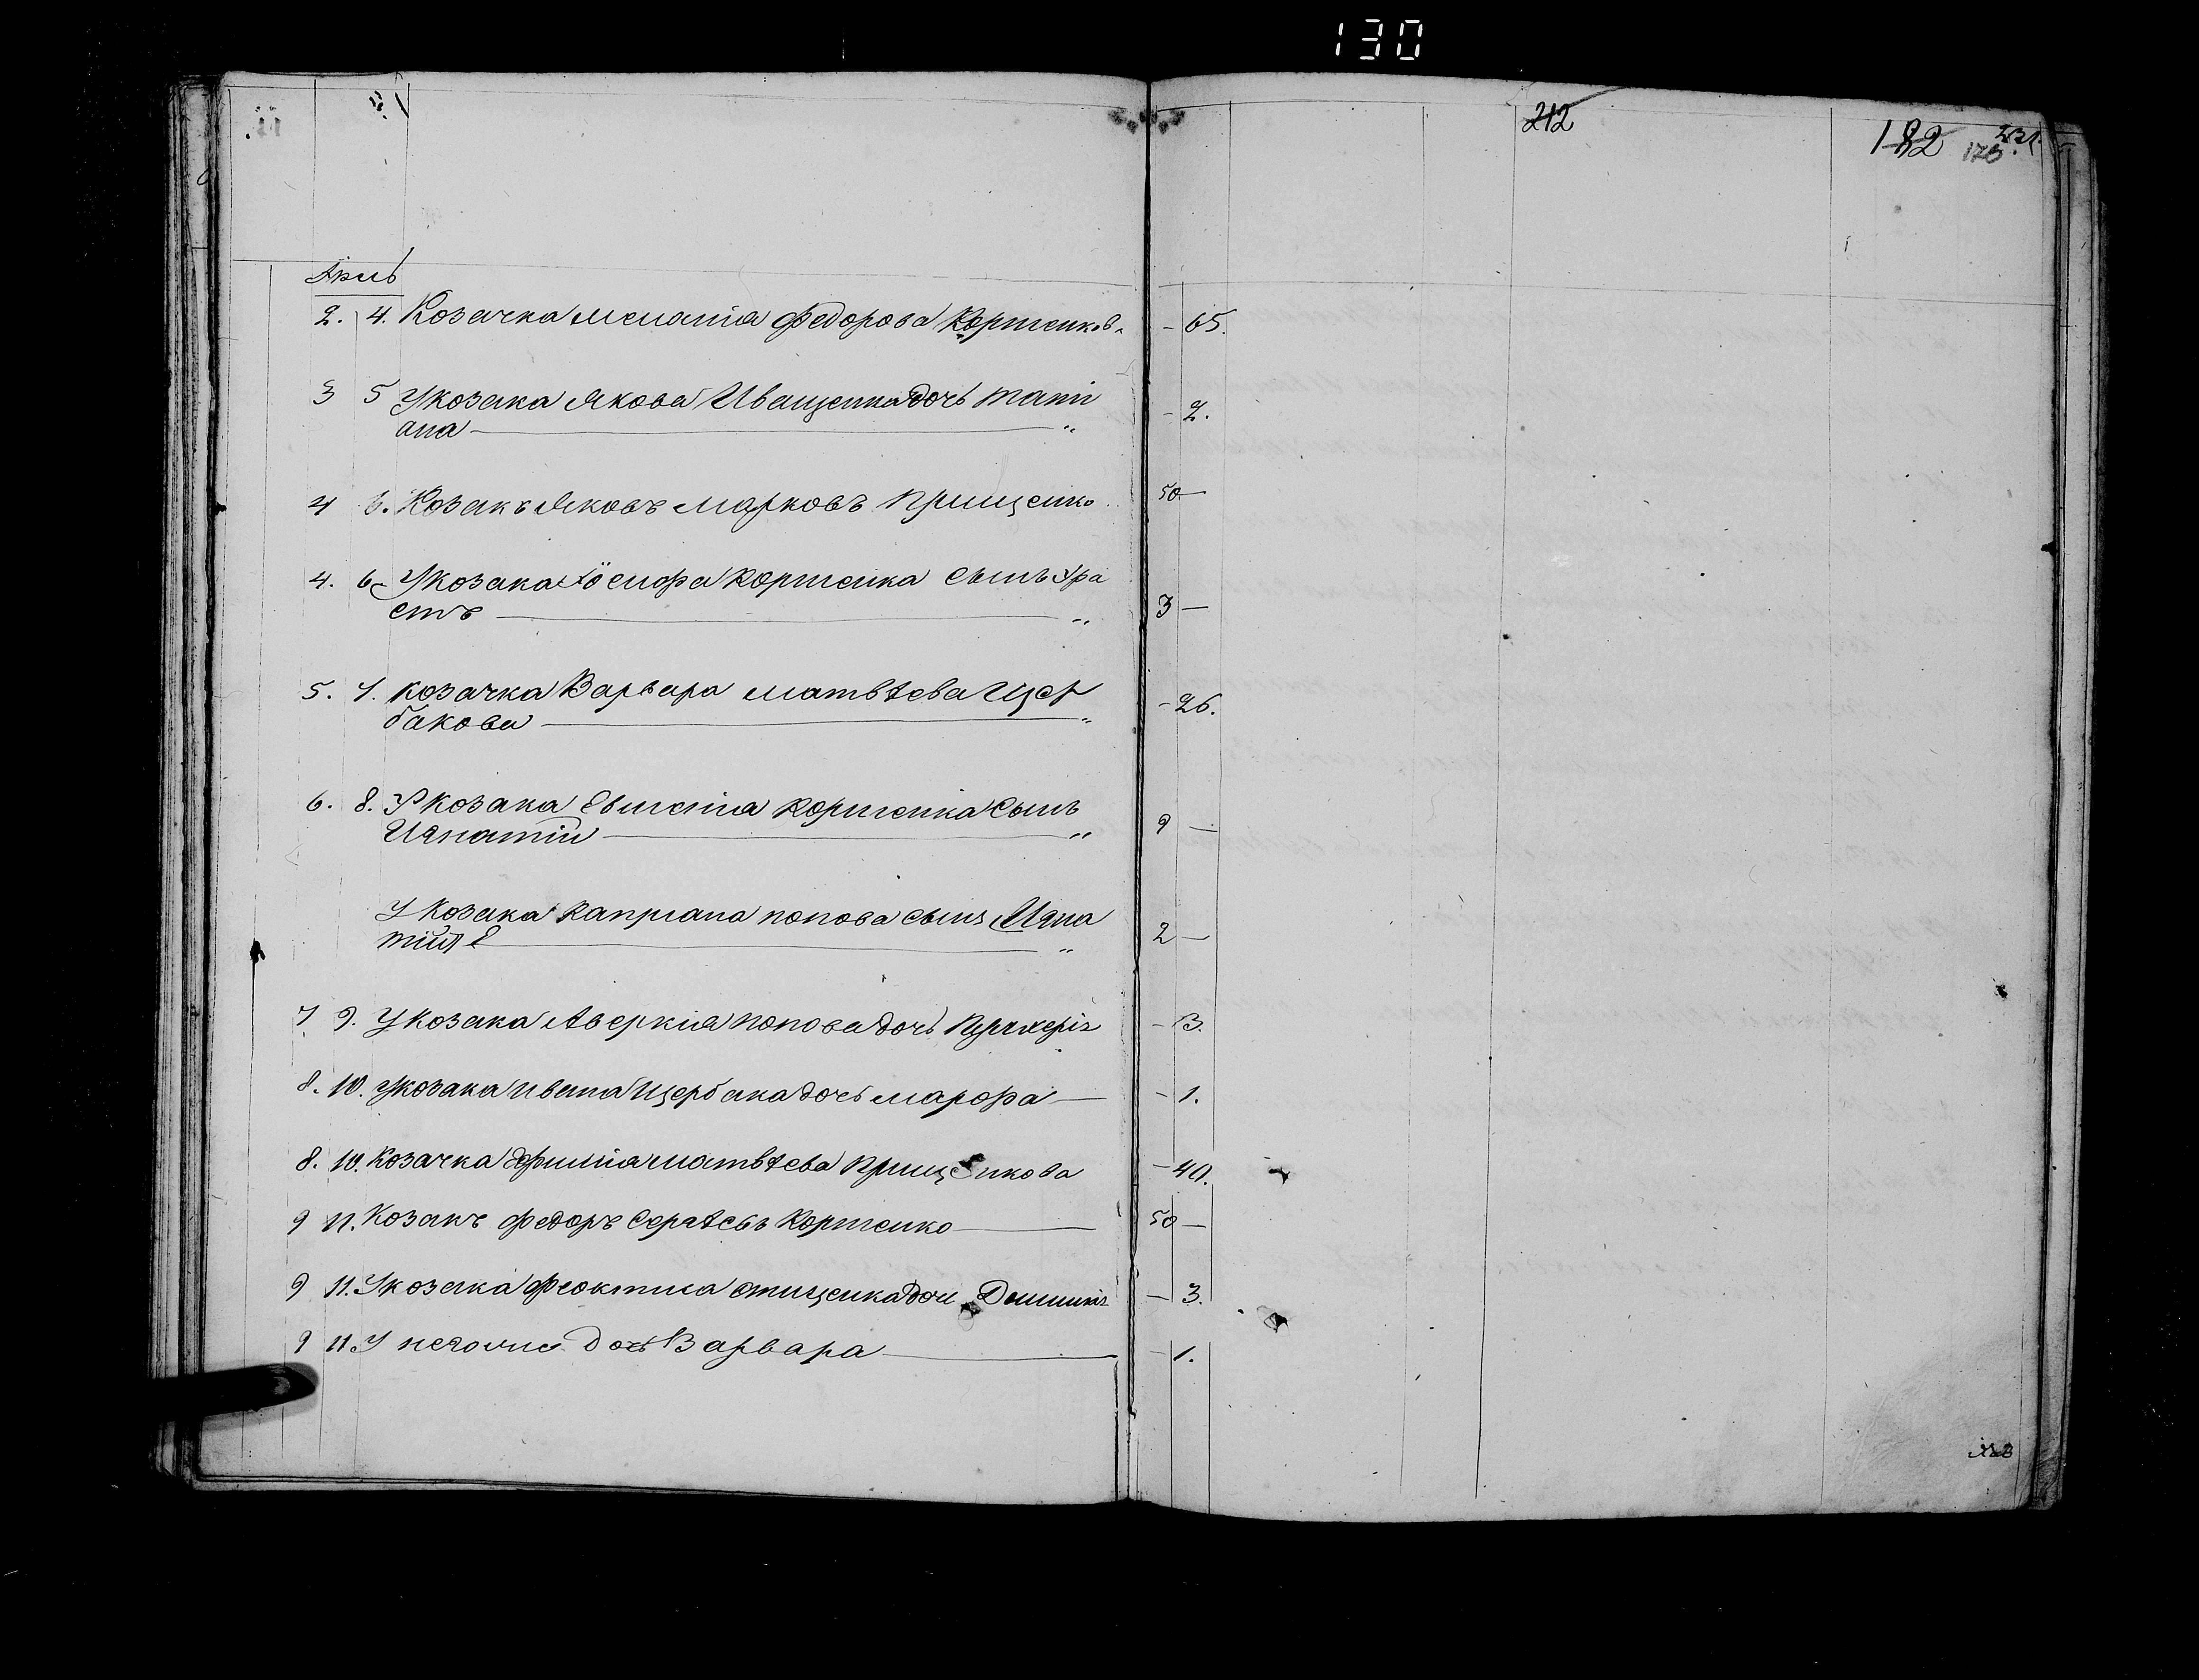 130
212
182 176
2. 4. Козачка Меланія Федорова Кортенков. - 65.
3 5 У козака Якова Иващенка дочь Тати
ана — " - 2.
4 6. Козакъ Яковъ Марковъ Прищенко. 50 —
4. 6 У козака Іосифа Кортенка сынъ Ера
стъ — " 3 —
5. 7. Козачка Варвара Матвѣева Щер
бакова — " - 26.
6. 8. У козака Евгенія Кортенка сынъ
Игнатій — " 9 —
У козака Капріана Попова сынъ Игна
тій — " 2 —
7 9. У козака Аверкія Попова дочь - 3.
8. 10. У козака Ивана Щербака дочь Марфа — - 1.
8. 10. Козачка Матвѣева Прищенкова - 40.
9 11. Козакъ Федоръ Кортенко — 50 —
9 11. У козака Феоктиса дочь — 3.
9 11. У негоже дочь Варвара — - 1.